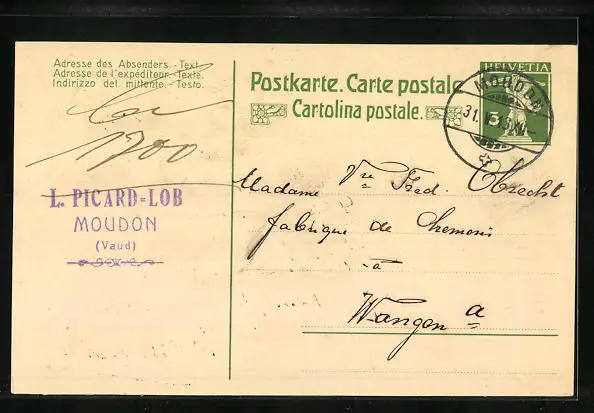 Adresse des Absenders. - Text.
Adresse de l'expéditeur. - Texte.
Indirizzo del mittente. - Testo.
1700
L. PICARD=LOB
MOUDON
(Vaud)
Postkarte. Carte postale
Cartolina postale.
HELVETIA
5
MOUDON
31.
Madame Vve Fred. Obrecht
fabrique de
à
Wangen a